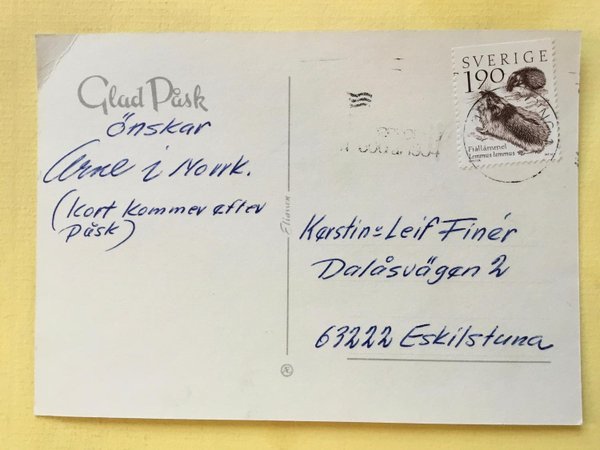 Glad Påsk
önskar
Arne i Norrk.
(Kort kommer efter
Påsk)
SVERIGE
190
Fjällämmel
Lemmus lemmus
Kerstin o Leif Finér
Dalåsvägen 2
63222 Eskilstuna